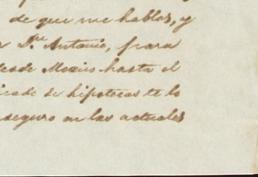 de que me hablas, y
Dn. Antonio, para
desde Mexico hasta el
de hipotecas te lo
seguro en las actuales